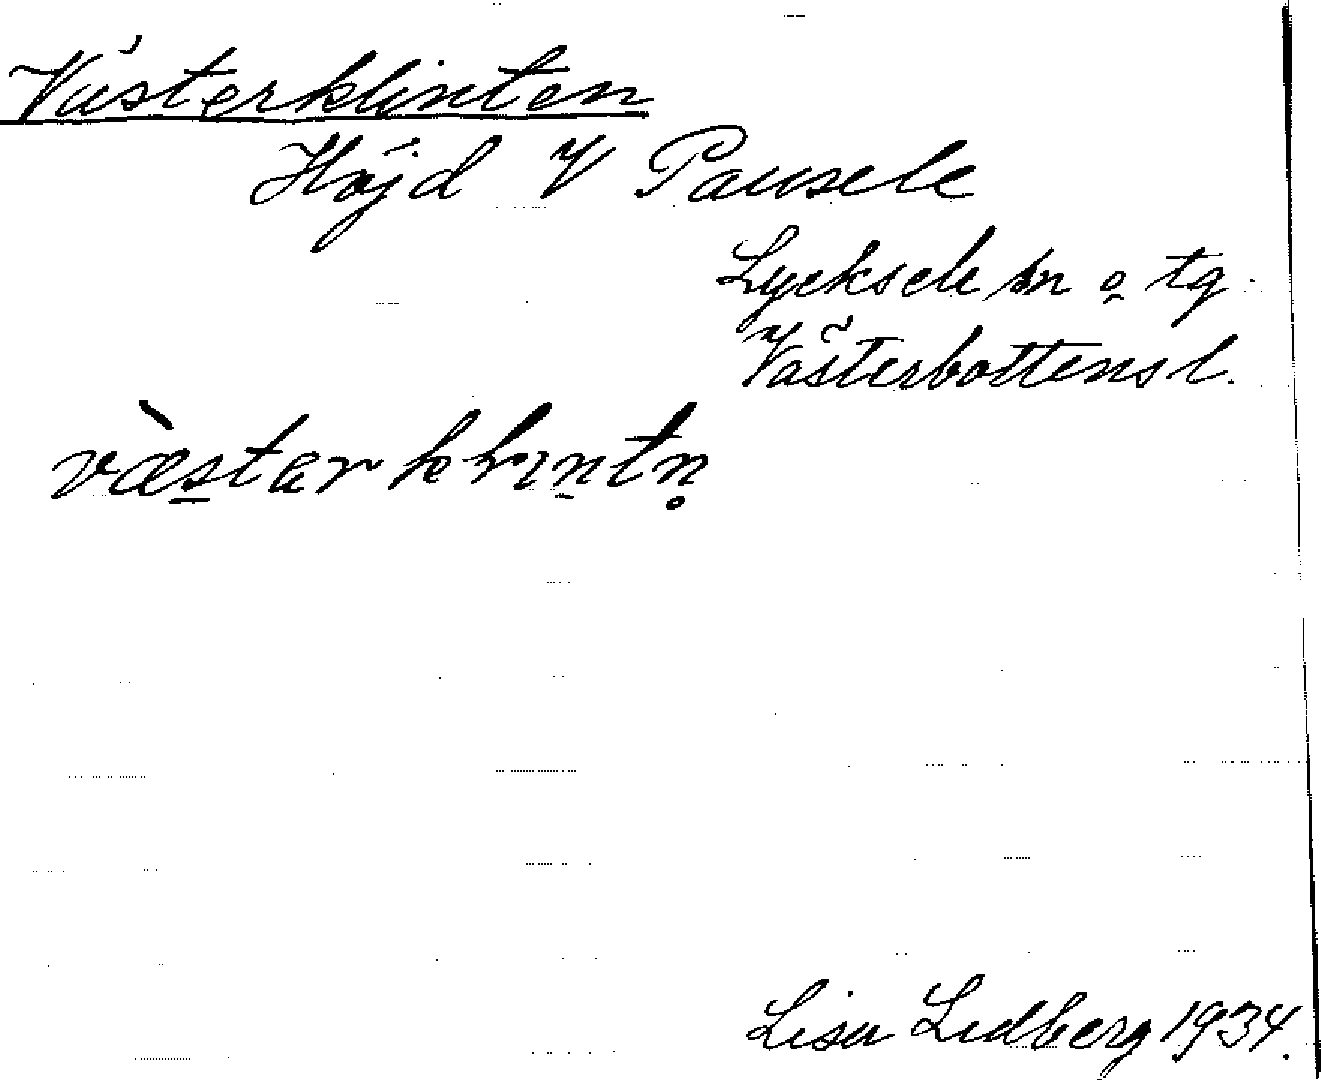 Västerklinten
Höjd V Pausele
Lycksele sn o tg.
Västerbottensl.
Lisa Lidberg 1934.